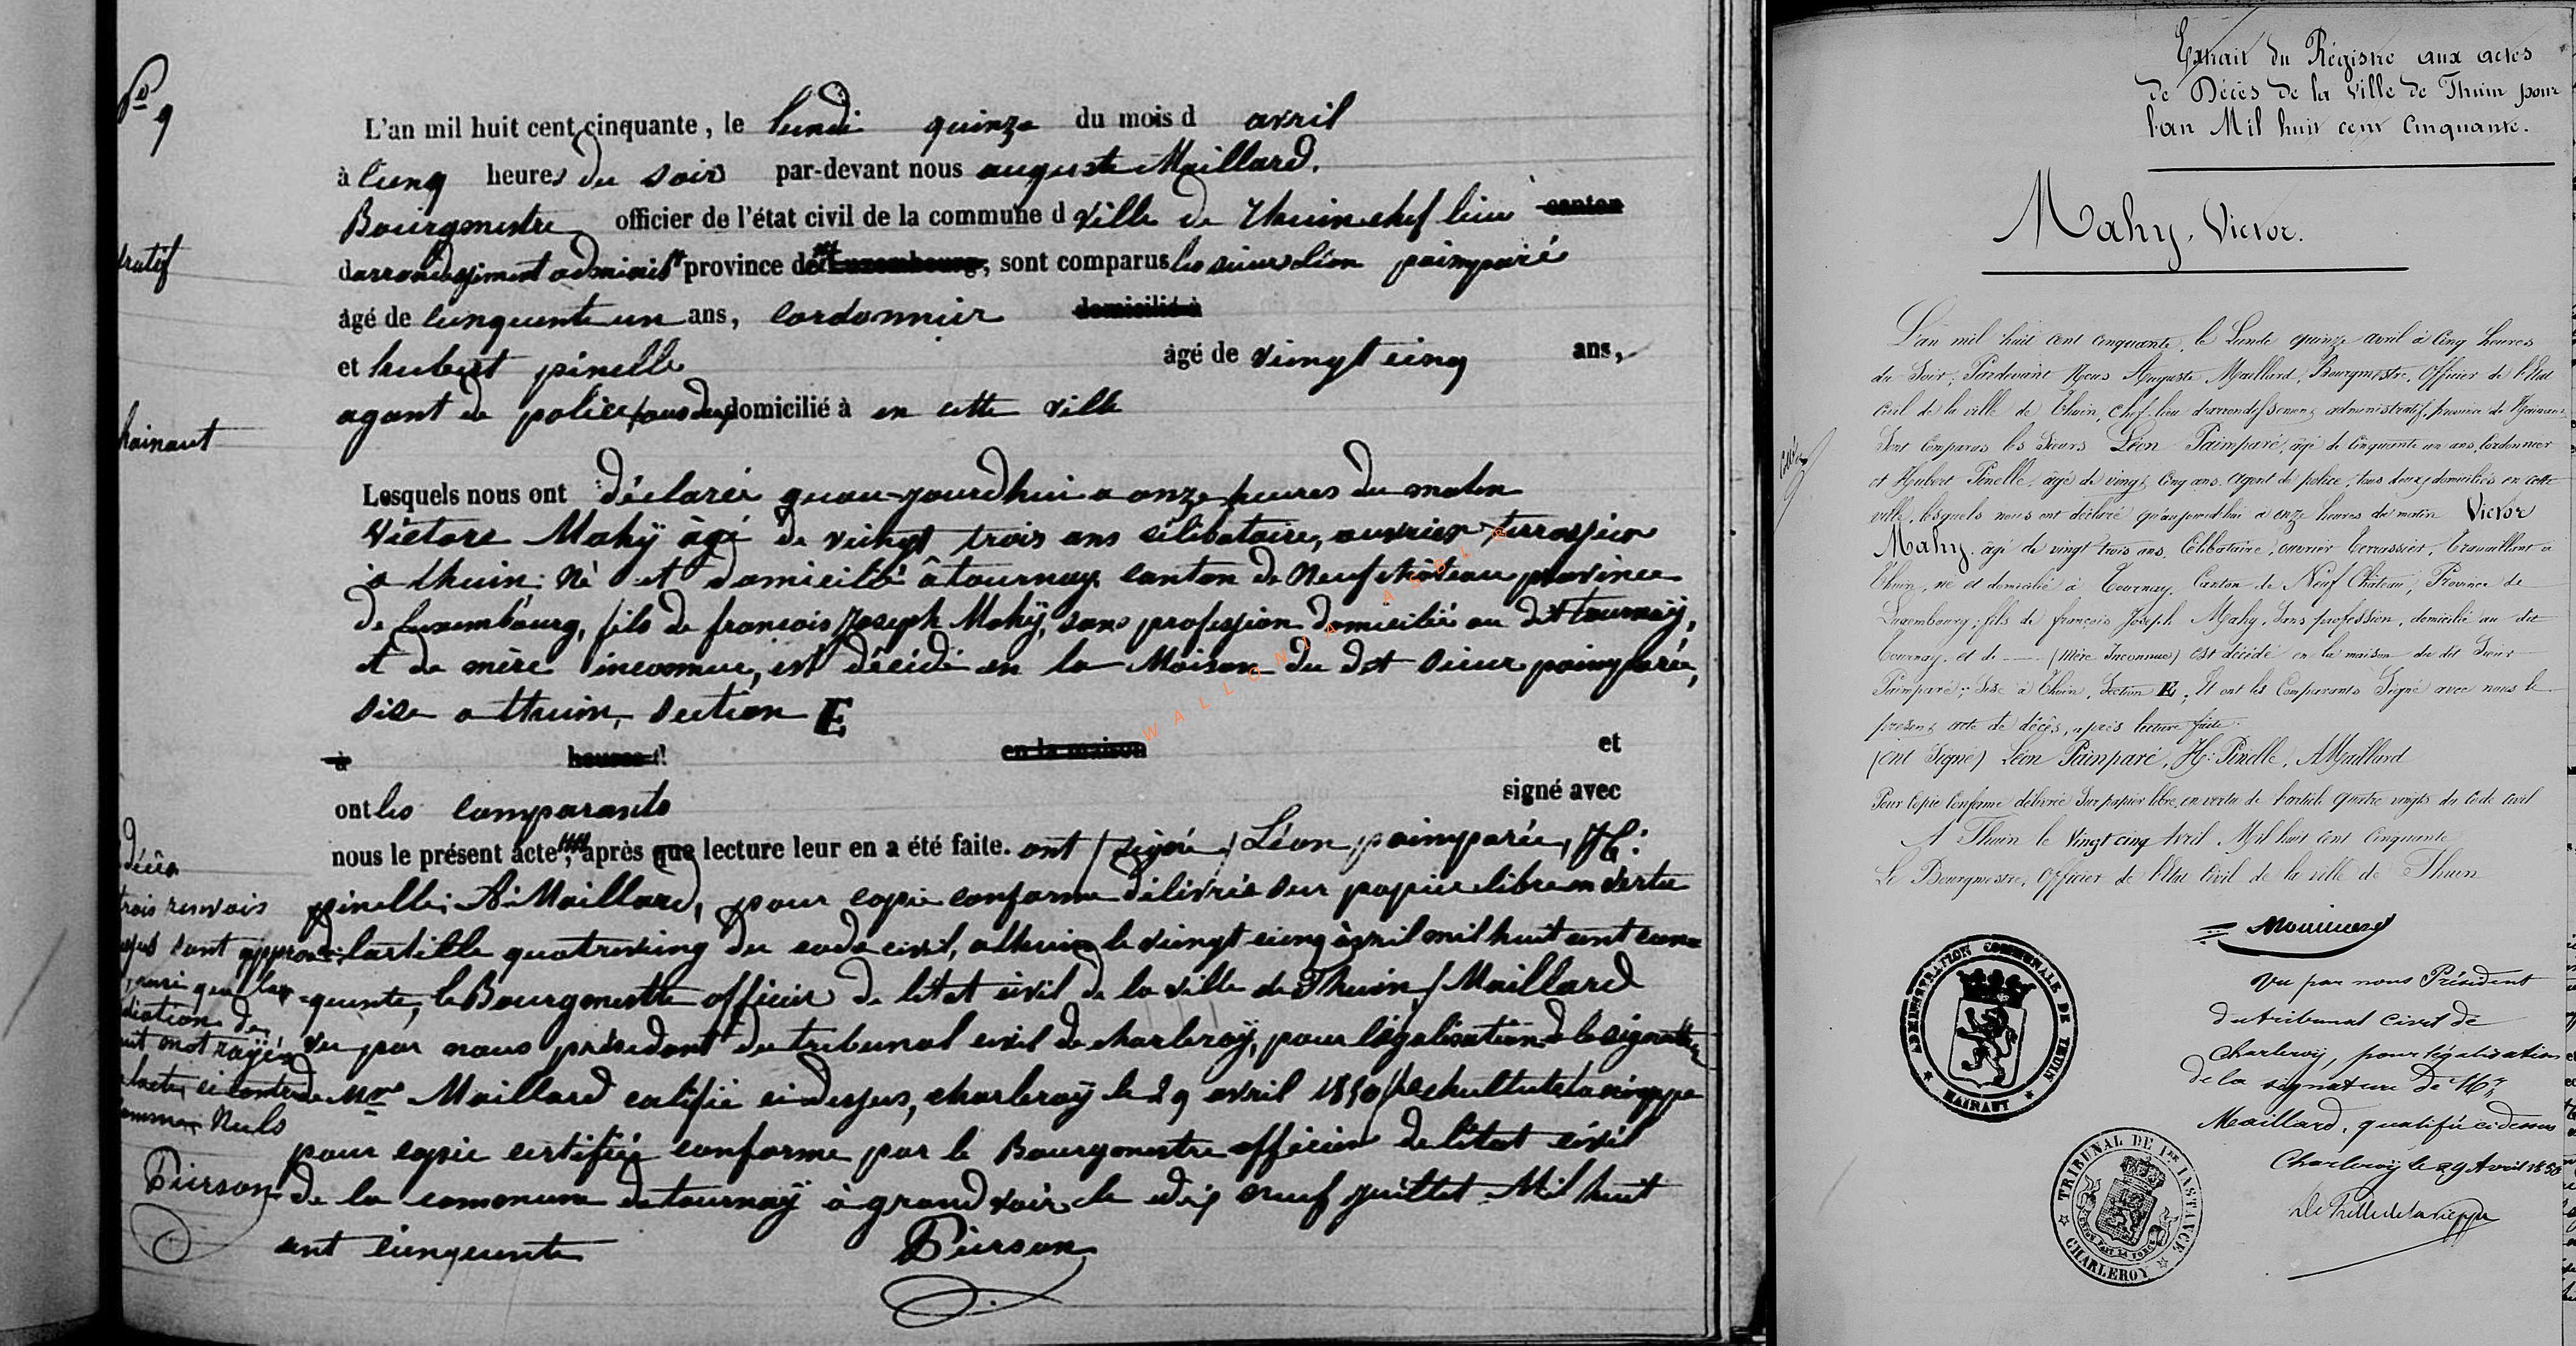 No 9
L'an mil huit cent cinquante, le lundi quinze du mois d avril
à cinq heures du soir par-devant nous auguste Maillard.
Bourgmestre officier de l'état civil de la commune d ville de thuin chef lieu canton
darrondissiment administ province de Luxembourg, sont comparus les sieurs Léon paimparé
tratif
âgé de cunquente un ans, cordonnier domicilié à
et hubert pinelle âgé de vingt cinq ans,
agent de police tous deux domicilié à en cette ville
hainaut
Lesquels nous ont déclarer quau-jourdhui a onze heures du matin
Victore Mahÿ âgé de vingt trois ans célibataire, ouvrier terrassier
a thuin; né et domicilié à tournay canton de Neufchâteau province
de Luxembourg, fils de francois Joseph Mahÿ, sans profession domicilié au dit tournaÿ,
et de mère inconnue, est décédé en la Maison du dit sieur paimparée,
sise a thuin, section E
WALLONIA ASBL ©
à heures d en la maison et
ont les comparants signé avec
nous le présent acte, après que lecture leur en a été faite. ont (signé) Léon paimparée, H:
pinelle, A: Maillard, pour copie conforme délivrée sur papier libre en vertu
lartille quatreving du code civil, a thuin le vingt cinq avril mil huit cent cun=
=quente, le Bourgmestre officier de létat civil de la ville de Thuin / Maillard
vu par nous président du tribunal civil de charleroÿ, pour légalisation de la signature
de Mr Maillard calefié cidessus, charleroÿ le 29 avril 1850
pour copie certifiée conforme par le Bourgmestre officier de létat civil
de la commune de tournaÿ à grandvoir le dix neuf juillet Mil huit
cent cunquente Pierson
décès
trois renvois
sont approu
ainsi que la
diation de
mot rayés
lacte ci contre
comme Nuls
Pierson
Extrait du Régistre aux actes
de Décès de la Ville de Thuin pour
l'an Mil huit cent Cinquante.
Mahy, Victor.
L'an mil huit cent cinquante, le Lundi quinze avril à Cinq heures
du Soir; Pardevant Nous Auguste Maillard, Bourgmestre, Officier de l'Etat
Civil de la ville de Thuin, Chef-lieu d'arrondissement administratif, province de Hainaut
Sont Comparus les Sieurs Léon Paimparé, âgé de Cinquante un ans, Cordonnier
et Hubert Pinelle, âgé de vingt Cinq ans, Agent de police, tous deux domiciliés en cette
ville, lesquels nous ont déclaré qu'aujourd'hui à onze heures du matin Victor
Mahy, âgé de vingt trois ans, Célibataire, ouvrier Terrassier, Travaillant à
Thuin, né et domicilié à Tournay, Canton de Neuf Château, Province de
Luxembourg; fils de françois Joseph Mahy, Sans profession, domicilié au dit
Tournay, et de —— (Mère Inconnue) est décédé en la maison du dit Sieur
Paimparé; Sise à Thuin, Section E; Et ont les Comparants Signé avec nous le
présent acte de décès, après lecture faite.
(ont Signé) Léon Paimparé, H: Pinelle, AMaillard
Pour Copie Conforme délivrée Sur papier libre, en vertu de l'article quatre vingts du Code Civil
A Thuin le Vingt cinq Avril Mil huit cent Cinquante
Le Bourgmestre, Officier de l'Etat Civil de la ville de Thuin
Maillard
Vu par nous Président
du tribunal Civil de
Charleroy, pour légalisation
de la signature de Mr
Maillard, qualifié ci dessus
Charleroy le 29 Avril 1850
ADMINISTRATION COMMUNALE DE THUIN
HAINAUT
TRIBUNAL DE 1re INSTANCE
CHARLEROY